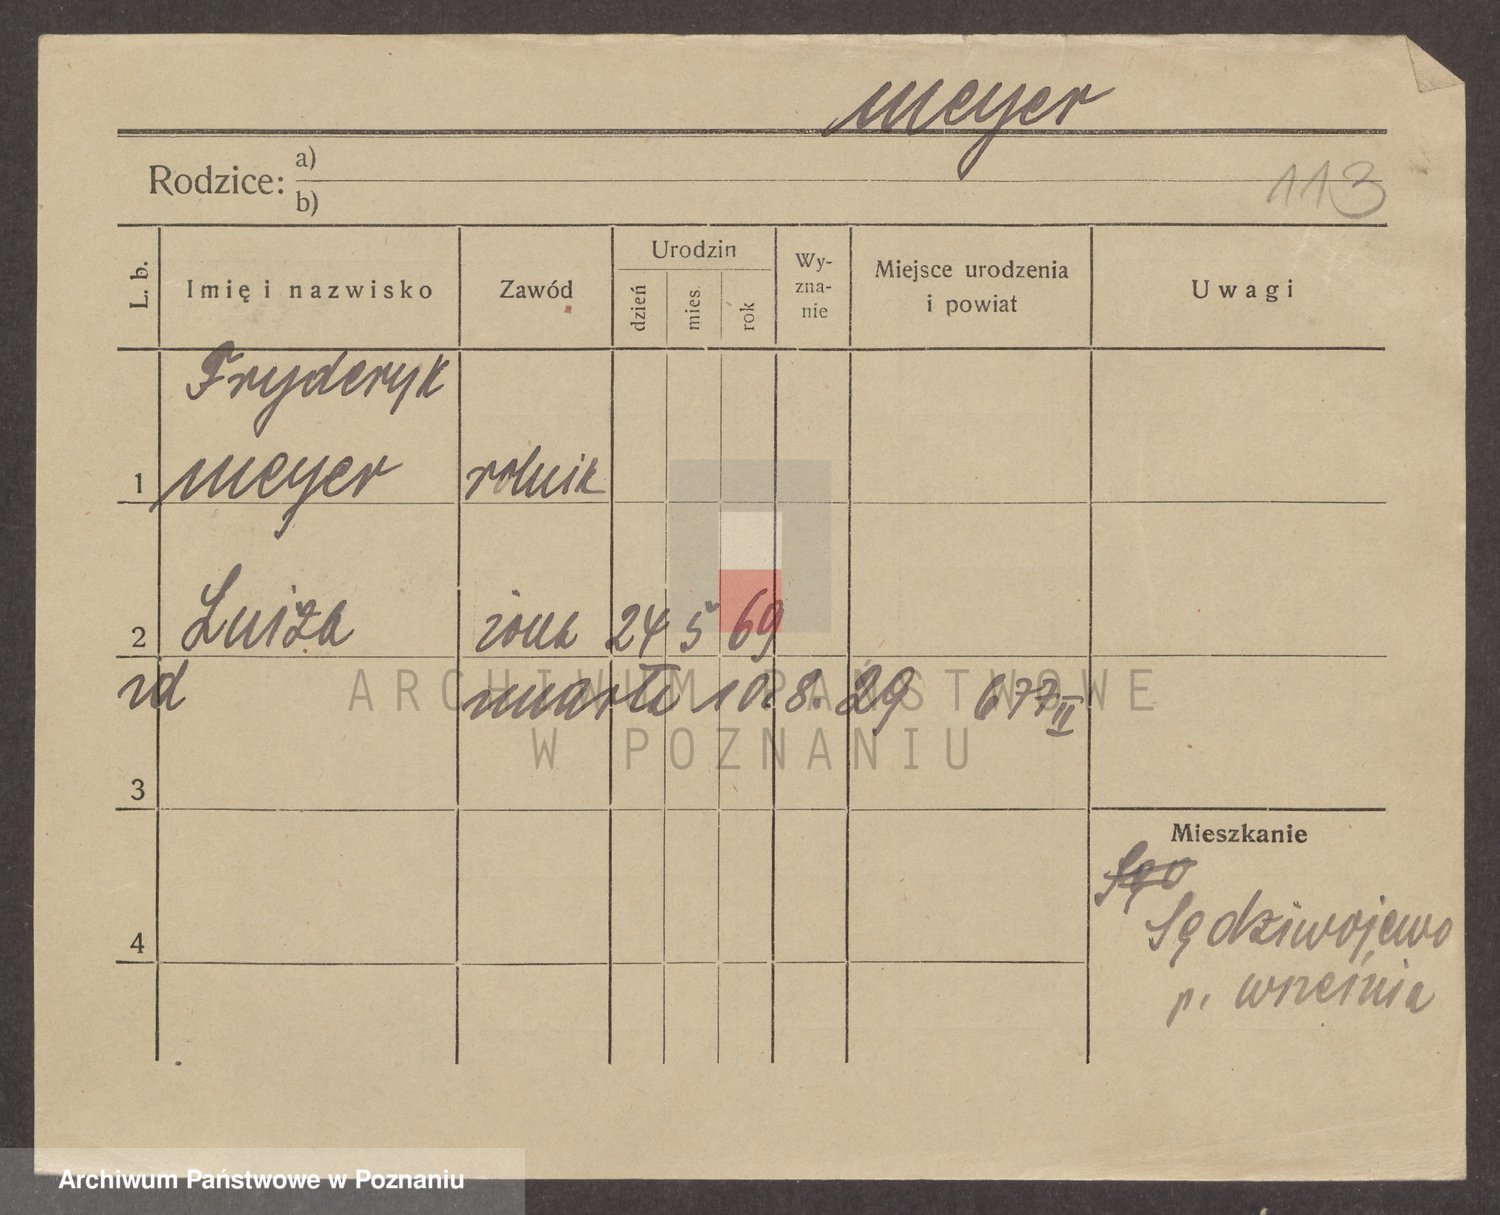 Meyer
Rodzice: a)
b)
113
L. b. Imię i nazwisko Zawód Urodzin dzień mies. rok Wyznanie Miejsce urodzenia i powiat Uwagi
Fryderyk
1 Meyer rolnik
2 Luiza żona 24 5 69
zd zmarła 10. 8. 29 677 II
3
Mieszkanie
Sędziwojewo
4
p. Września
ARCHIWUM PAŃSTWOWE
W POZNANIU
Archiwum Państwowe w Poznaniu